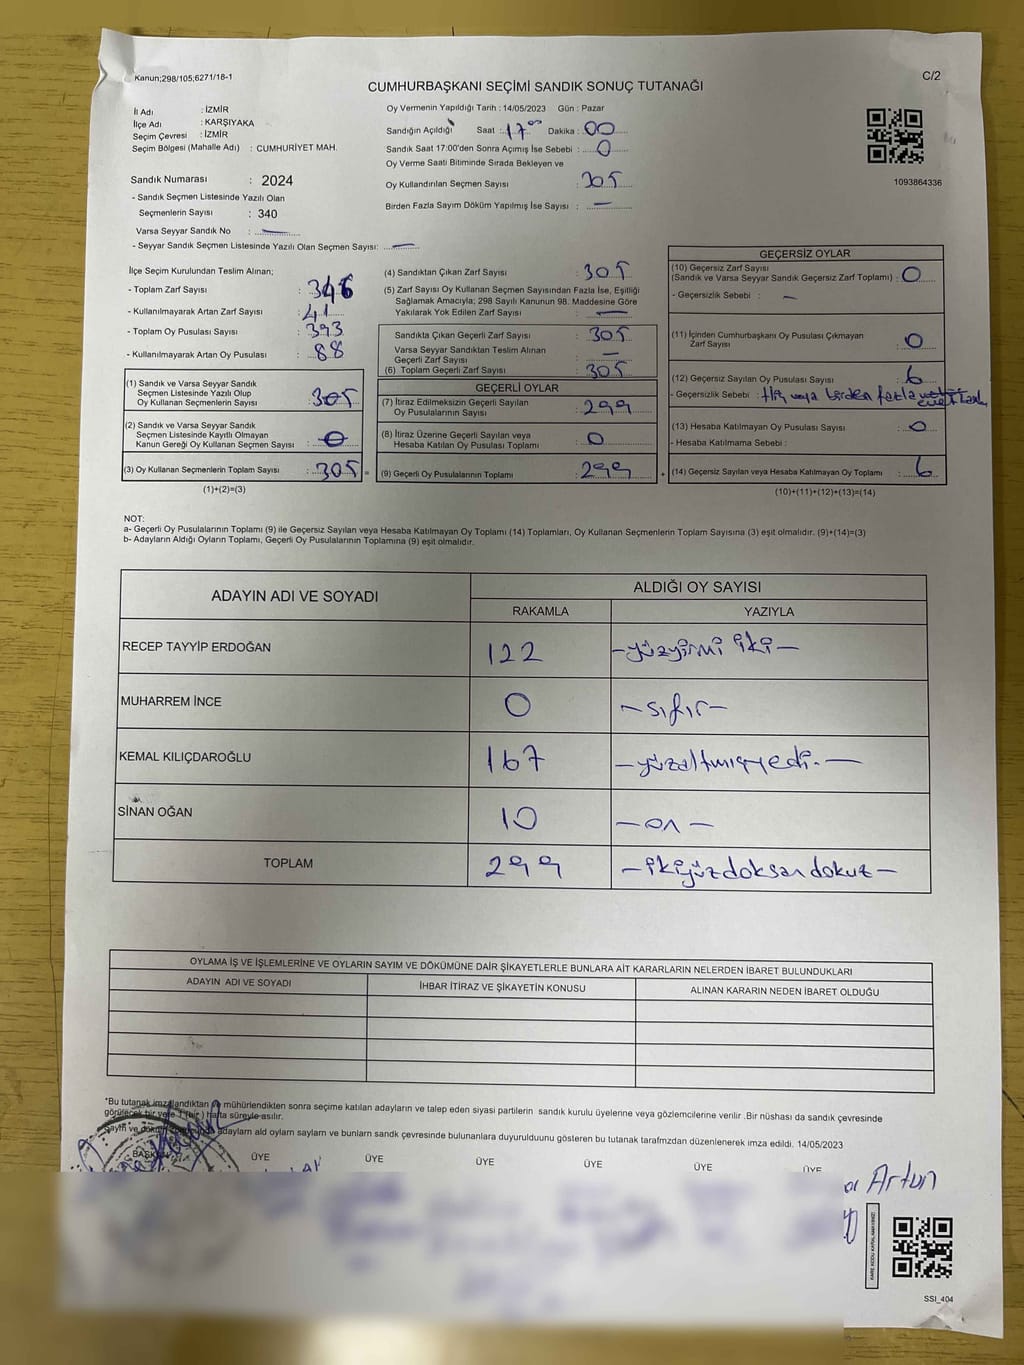 Kanun;298/105;6271/18-1
C/2
CUMHURBAŞKANI SEÇİMİ SANDIK SONUÇ TUTANAĞI
İl Adı : İZMİR
İlçe Adı : KARŞIYAKA
Seçim Çevresi : İZMİR
Seçim Bölgesi (Mahalle Adı) : CUMHURİYET MAH.
Sandık Numarası : 2024
- Sandık Seçmen Listesinde Yazılı Olan
Seçmenlerin Sayısı : 340
Varsa Seyyar Sandık No : —
- Seyyar Sandık Seçmen Listesinde Yazılı Olan Seçmen Sayısı: —
Oy Vermenin Yapıldığı Tarih : 14/05/2023 Gün : Pazar
Sandığın Açıldığı Saat : 17⁰⁰ Dakika : 00
Sandık Saat 17:00'den Sonra Açımış İse Sebebi : 0
Oy Verme Saati Bitiminde Sırada Bekleyen ve
Oy Kullandırılan Seçmen Sayısı : 305
Birden Fazla Sayım Döküm Yapılmış İse Sayısı : —
1093864336
İlçe Seçim Kurulundan Teslim Alınan;
- Toplam Zarf Sayısı : 346
- Kullanılmayarak Artan Zarf Sayısı : 41
- Toplam Oy Pusulası Sayısı : 393
- Kullanılmayarak Artan Oy Pusulası : 88
(1) Sandık ve Varsa Seyyar Sandık
Seçmen Listesinde Yazılı Olup
Oy Kullanan Seçmenlerin Sayısı : 305
(2) Sandık ve Varsa Seyyar Sandık
Seçmen Listesinde Kayıtlı Olmayan
Kanun Gereği Oy Kullanan Seçmen Sayısı : 0
(3) Oy Kullanan Seçmenlerin Toplam Sayısı : 305 =
(1)+(2)=(3)
(4) Sandıktan Çıkan Zarf Sayısı : 305
(5) Zarf Sayısı Oy Kullanan Seçmen Sayısından Fazla İse, Eşitliği
Sağlamak Amacıyla; 298 Sayılı Kanunun 98. Maddesine Göre
Yakılarak Yok Edilen Zarf Sayısı : —
Sandıkta Çıkan Geçerli Zarf Sayısı : 305
Varsa Seyyar Sandıktan Teslim Alınan
Geçerli Zarf Sayısı : —
(6) Toplam Geçerli Zarf Sayısı : 305
GEÇERLİ OYLAR
(7) İtiraz Edilmeksizin Geçerli Sayılan
Oy Pusulalarının Sayısı : 299
(8) İtiraz Üzerine Geçerli Sayılan veya
Hesaba Katılan Oy Pusulası Toplamı : 0
(9) Geçerli Oy Pusulalarının Toplamı : 299 +
GEÇERSİZ OYLAR
(10) Geçersiz Zarf Sayısı
(Sandık ve Varsa Seyyar Sandık Geçersiz Zarf Toplamı) : 0
- Geçersizlik Sebebi : —
(11) İçinden Cumhurbaşkanı Oy Pusulası Çıkmayan
Zarf Sayısı : 0
(12) Geçersiz Sayılan Oy Pusulası Sayısı : 6
- Geçersizlik Sebebi : Hiç veya birden fazla
(13) Hesaba Katılmayan Oy Pusulası Sayısı : 0
- Hesaba Katılmama Sebebi :
(14) Geçersiz Sayılan veya Hesaba Katılmayan Oy Toplamı : 6
(10)+(11)+(12)+(13)=(14)
NOT:
a- Geçerli Oy Pusulalarının Toplamı (9) ile Geçersiz Sayılan veya Hesaba Katılmayan Oy Toplamı (14) Toplamları, Oy Kullanan Seçmenlerin Toplam Sayısına (3) eşit olmalıdır. (9)+(14)=(3)
b- Adayların Aldığı Oyların Toplamı, Geçerli Oy Pusulalarının Toplamına (9) eşit olmalıdır.
ADAYIN ADI VE SOYADI
ALDIĞI OY SAYISI
RAKAMLA YAZIYLA
RECEP TAYYİP ERDOĞAN 122 —yüzyirmi iki—
MUHARREM İNCE 0 —sıfır—
KEMAL KILIÇDAROĞLU 167 —yüzaltmışyedi.—
SİNAN OĞAN 10 —on—
TOPLAM 299 —ikiyüzdoksandokuz—
OYLAMA İŞ VE İŞLEMLERİNE VE OYLARIN SAYIM VE DÖKÜMÜNE DAİR ŞİKAYETLERLE BUNLARA AİT KARARLARIN NELERDEN İBARET BULUNDUKLARI
ADAYIN ADI VE SOYADI İHBAR İTİRAZ VE ŞİKAYETİN KONUSU ALINAN KARARIN NEDEN İBARET OLDUĞU
*Bu tutanak imzalandıktan ve mühürlendikten sonra seçime katılan adayların ve talep eden siyasi partilerin sandık kurulu üyelerine veya gözlemcilerine verilir .Bir nüshası da sandık çevresinde
görülecek bir yere 1 (bir ) hafta süreyle asılır.
Sayım ve adayların ald oylarn saylarn ve bunların sandk çevresinde bulunanlara duyurulduunu gösteren bu tutanak tarafmzdan düzenlenerek imza edildi. 14/05/2023
BAŞKAN ÜYE ÜYE ÜYE ÜYE ÜYE ÜYE
Artun
KARE KODU KARALAMAYINIZ!
SSİ_404